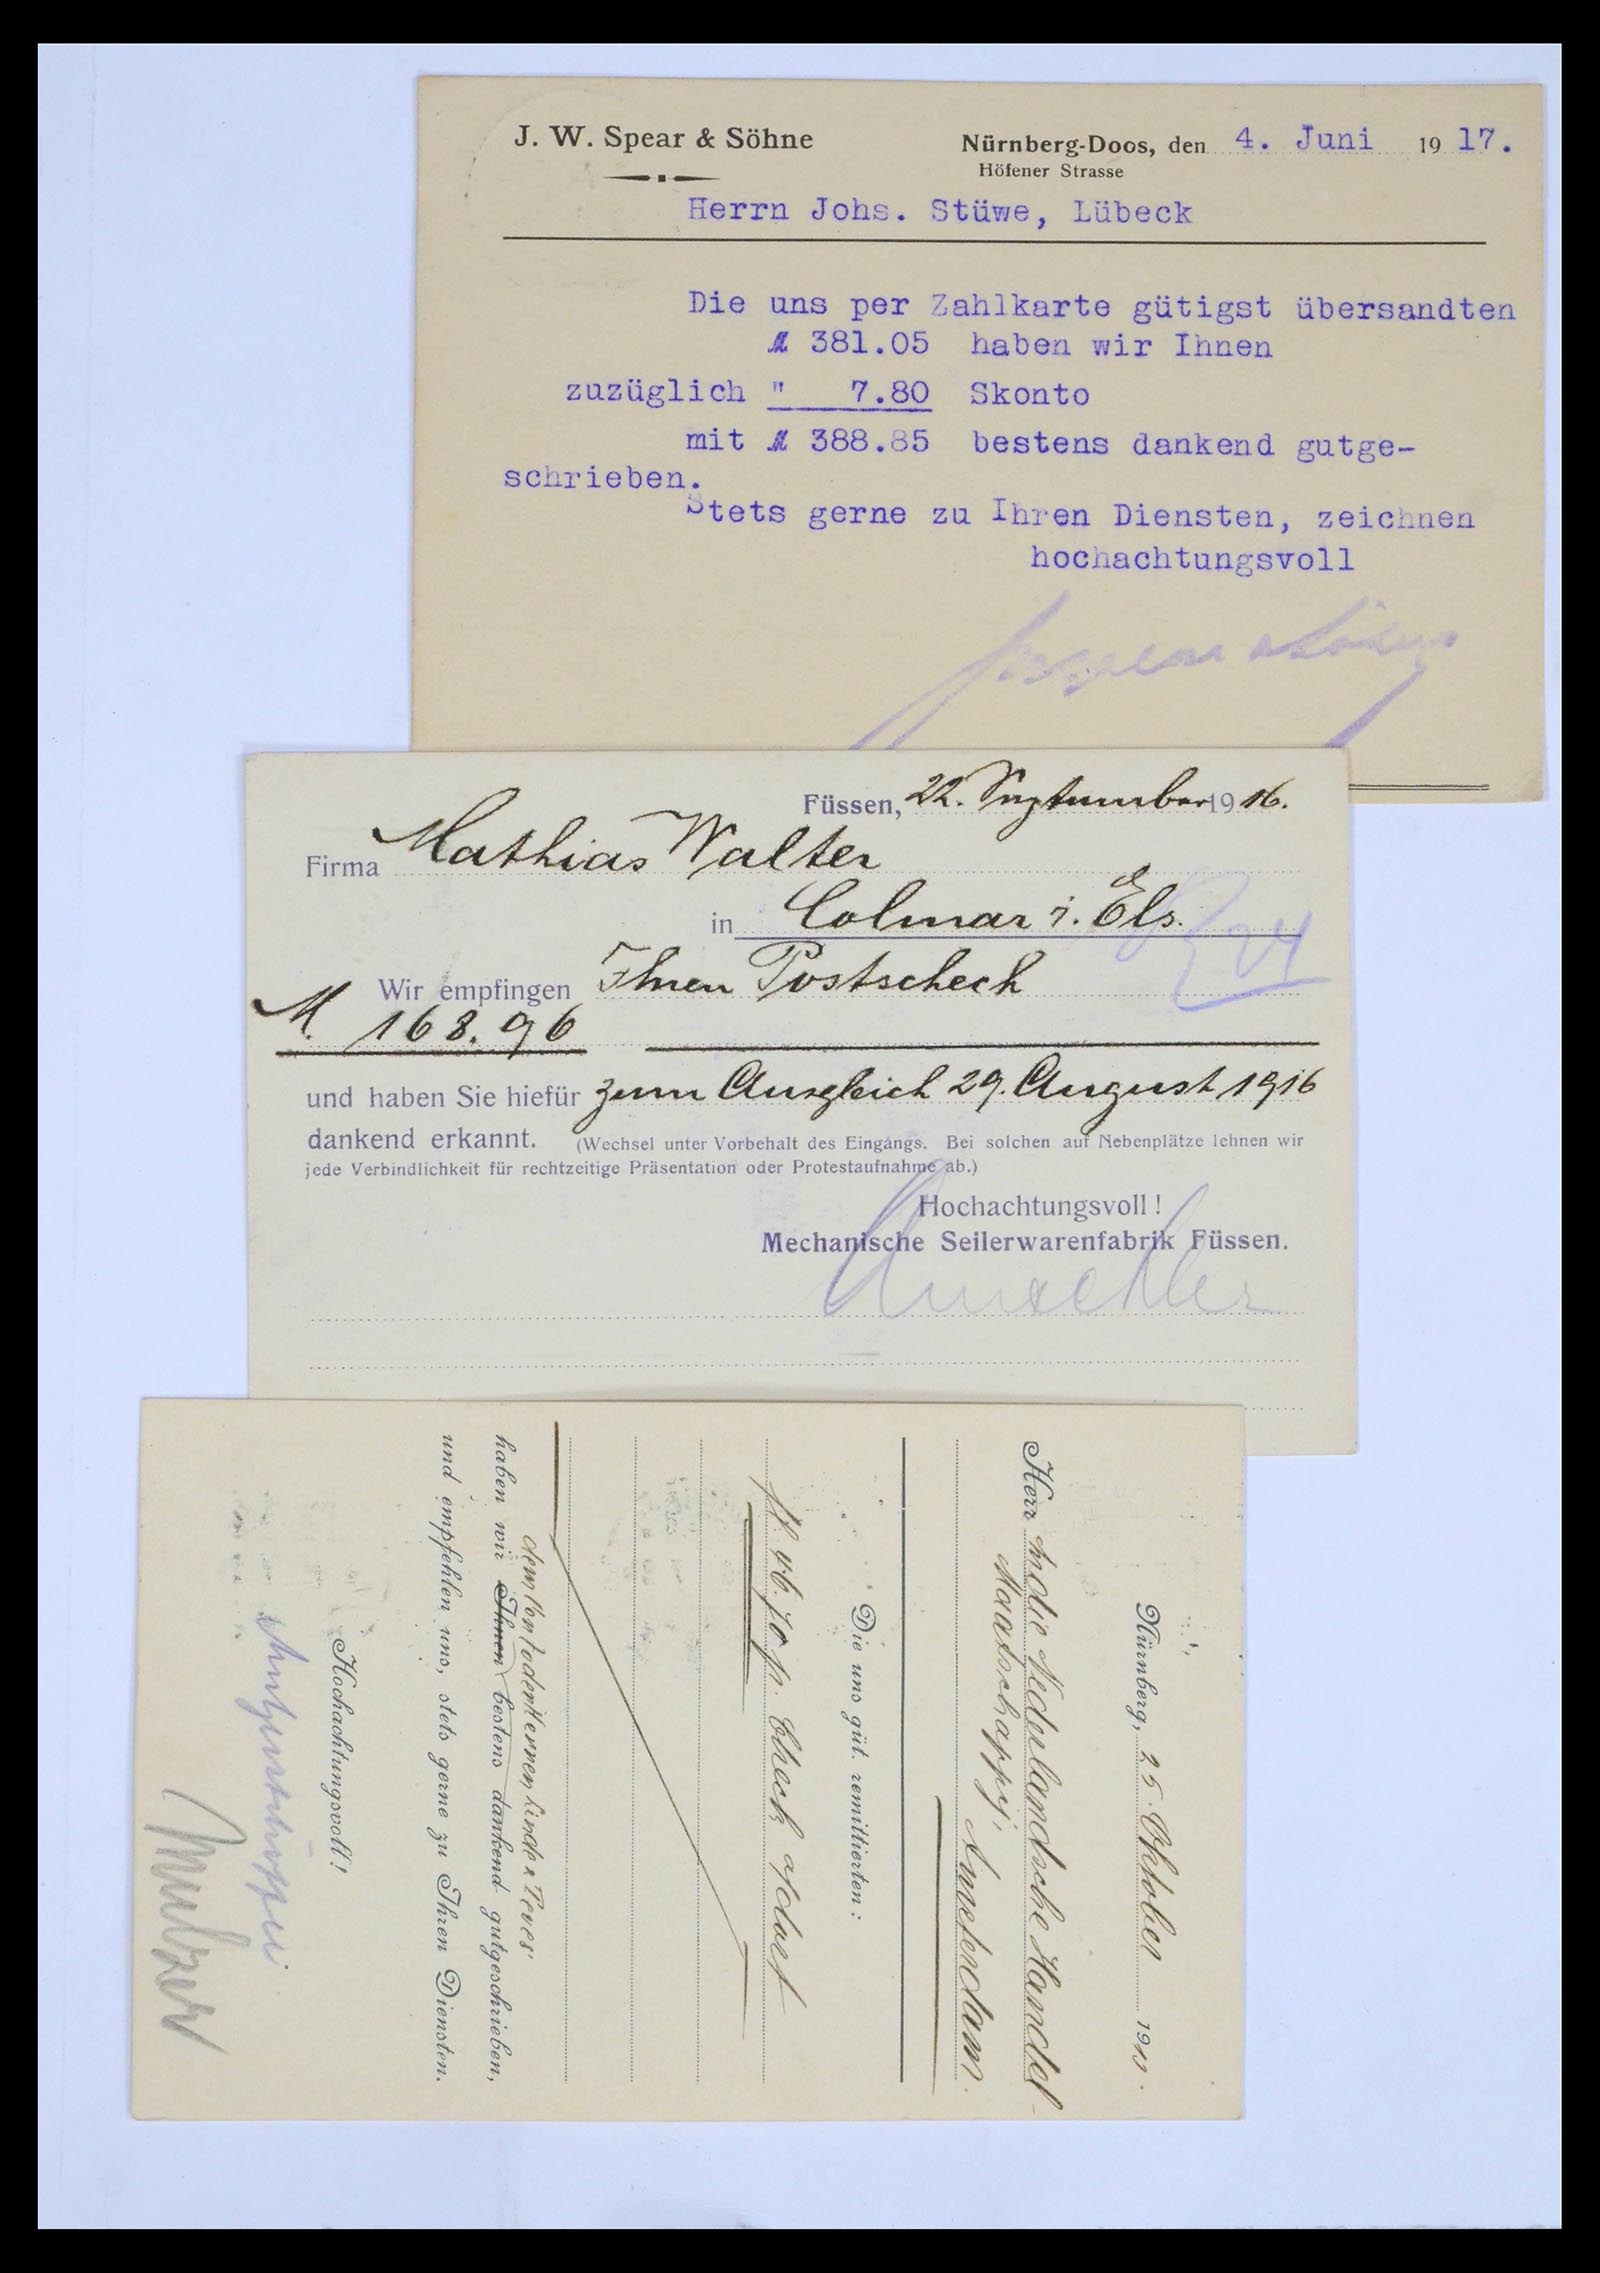 J. W. Spear & Söhne
Nürnberg-Doos, den 4. Juni 1917.
Höfener Strasse
Herrn Johs. Stüwe, Lübeck
Die uns per Zahlkarte gütigst übersandten
ℳ 381.05 haben wir Ihnen
zuzüglich " 7.80 Skonto
mit ℳ 388.85 bestens dankend gutge-
schrieben.
Stets gerne zu Ihren Diensten, zeichnen
hochachtungsvoll
Füssen, 22. September 1916.
Firma Mathias Walter
in Colmar i. Els.
Wir empfingen Ihren Postscheck
M. 168.96
und haben Sie hiefür zum Ausgleich 29. August 1916
dankend erkannt. (Wechsel unter Vorbehalt des Eingangs. Bei solchen auf Nebenplätze lehnen wir
jede Verbindlichkeit für rechtzeitige Präsentation oder Protestaufnahme ab.)
Hochachtungsvoll!
Mechanische Seilerwarenfabrik Füssen.
Nürnberg, 25. Oktober 191
Herr Nederlandsche Handel-
Maatschappij,
Amsterdam.
Die uns güt. remittierten:
p. Check
dem Conto der Herren Linde & Teves'
haben wir Ihnen bestens dankend gutgeschrieben,
und empfehlen uns, stets gerne zu Ihren Diensten.
Hochachtungsvoll!